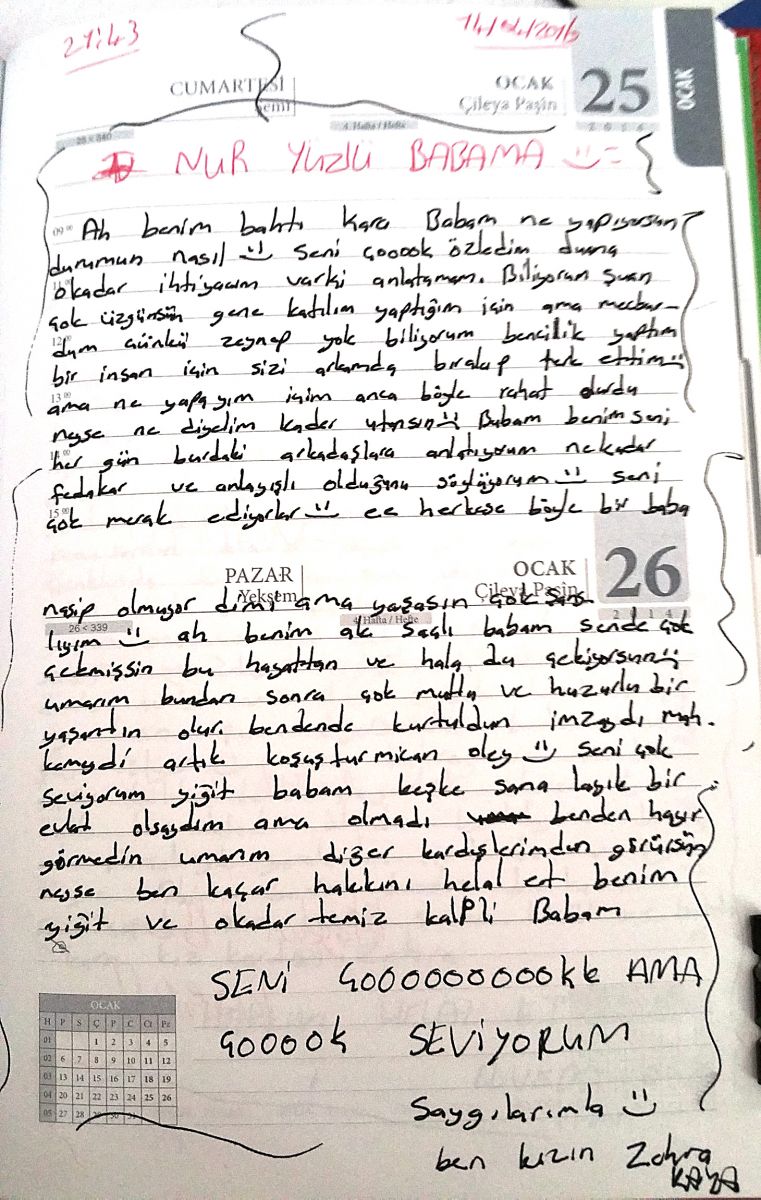 21:43
14/04/2016
CUMARTESİ
Şemî
OCAK
Çileya Paşîn
25
OCAK
4. Hafta / Hefte
2 0 1 4
NUR YÜZLÜ BABAMA
09 00 Ah benim bahtı kara Babam ne yapıyorsun?
durumun nasıl seni çooook özledim duana
okadar ihtiyacım varki anlatamam. Biliyorum şuan
çok üzgünsün gene katılım yaptığım için ama mecbur-
dum çünkü zeynep yok biliyorum bencilik yaptım
bir insan için sizi arkamda bırakıp terk ettim
13 00 ama ne yapayım içim anca böyle rahat durdu
neyse ne diyelim kader utansın Babam benim seni
her gün burdaki arkadaşlara anlatıyorum nekadar
fedakar ve anlayışlı olduğunu söylüyorum seni
15 00 çok merak ediyorlar ee herkese böyle bir baba
PAZAR
Yekşem
OCAK
Çileya Paşîn
26
26 < 339
4. Hafta / Hefte
2 0 1 4
nasip olmuyor dimi ama yaşasın çok şans-
lıyım ah benim ak saçlı babam sende çok
çekmişsin bu hayattan ve hala da çekiyorsun
umarım bundan sonra çok mutlu ve huzurlu bir
yaşantın olur. bendende kurtuldun imzaydı mah.
kemeydi artık koşuşturmican oley seni çok
seviyorum yiğit babam keşke sana layık bir
evlat olsaydım ama olmadı benden hayır
görmedin umarım diğer kardişlerimden görürsün
neyse ben kaçar hakkını helal et benim
yiğit ve okadar temiz kalpli Babam
SENİ ÇOOOOOOOOOOkk AMA
ÇOOOOk SEVİYORUM
Saygılarımla
ben kızın Zehra
KAYA
OCAK
H P S Ç P C Ct Pz
01 1 2 3 4 5
02 6 7 8 9 10 11 12
03 13 14 15 16 17 18 19
04 20 21 22 23 24 25 26
05 27 28 29 30 31